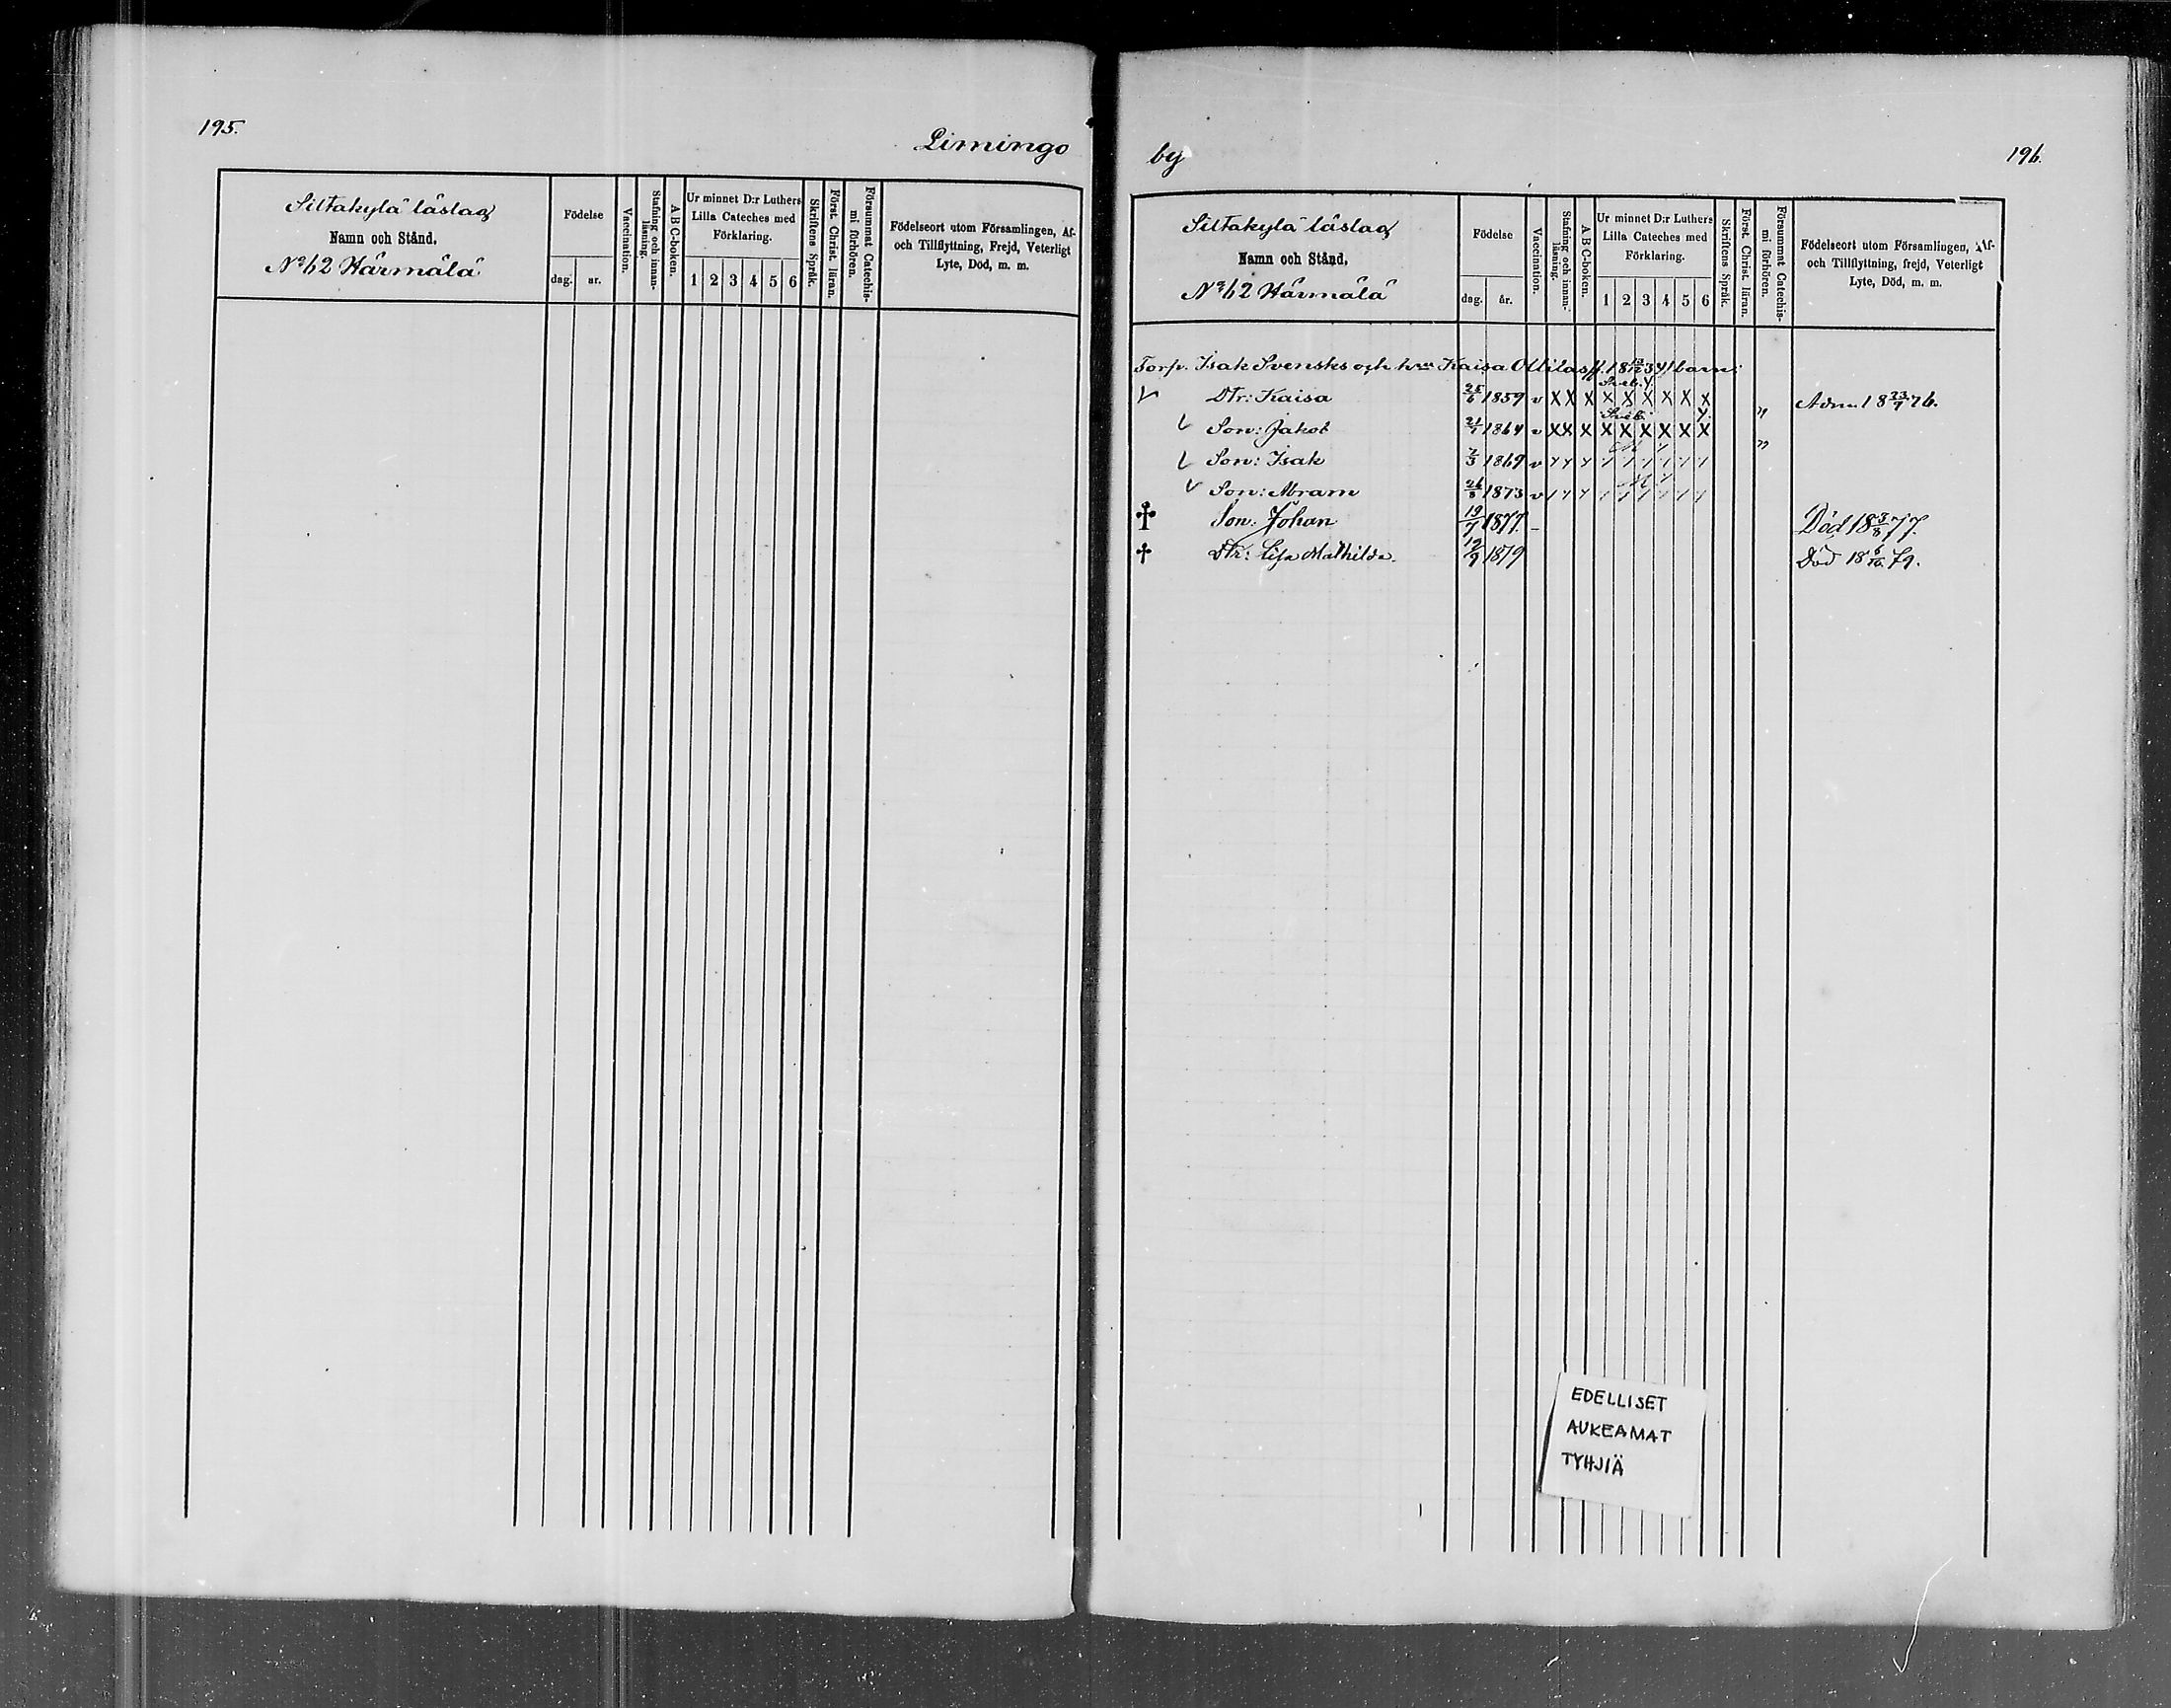 195.
Limingo
Siltakylä läslag
Namn och Stånd.
No 62 Härmälä
Födelse
dag.
ar.
Vaccination.
Stafning och innan-
läsning.
A B C-boken.
Ur minnet D:r Luthers
Lilla Cateches med
Förklaring.
1 2 3 4 5 6
Skriftens Språk.
Först. Christ. läran.
Försummat Catechis-
mi förhören.
Födelseort utom Församlingen, Af-
och Tillflyttning, Frejd, Veterligt
Lyte, Död, m. m.
by
196.
Siltakylä läslag
Namn och Stånd,
No 62 Härmälä
Födelse
dag.
år.
Vaccination.
Stafning och innan-
läsning.
A B C-boken.
Ur minnet D:r Luthers
Lilla Cateches med
Förklaring.
1 2 3 4 5 6
Skriftens Språk.
Först. Christ. läran.
Försummat Catechis-
mi förhören.
Födelseort utom Församlingen, Af-
och Tillflyttning, frejd, Veterligt
Lyte, Död, m. m.
Torp. Isak Svensks och Kaisa barn:
Dtr: Kaisa 25/6 1859 v X X X X X X X X X Adm. 18 23/7 76.
Son: Jakob 21/7 1864 v X X X X X X X X X "
Son: Isak 2/3 1869 v "
Son: Abram 26/8 1873 v
† Son: Johan 19/7 1877. – Död 18 3/8 77.
† Dtr: Lisa Mathilda. 12/9 1879 Död 18 6/10 79.
EDELLISET
AUKEAMAT
TYHJIÄ